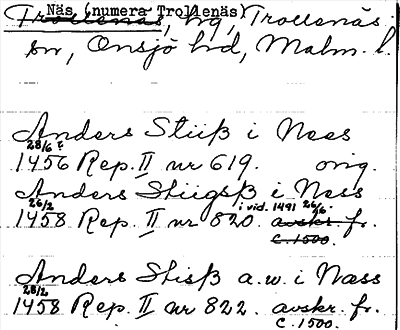 Näs (numera Trollenäs)
Trollenäs, hg, Trollenäs
sn, Onsjö hd, Malm. l.
Anders Stiiß i Ness
28/6
1456 Rep. II nr 619. orig.
Anders Stiigsß i Ness
26/2 i vid. 1491 26/6
1458 Rep. II nr 820. avskr. fr.
c. 1500.
Anders Stisß a.w. i Næss
28/2
1458 Rep. II nr 822. avskr. fr.
c. 1500.